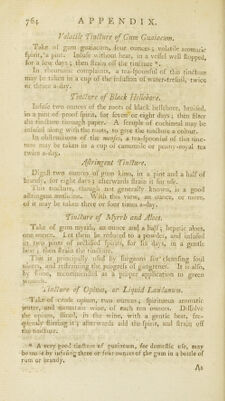 764 APPENDIX.
Volatile Tincture of Gum Guaiacum.
Take of gum guaiacum, four ounces; volatile aromatic
spirit, a pint. Infuse without heat, in a vessel well stopped,
for a few days; then strain off the tincture *.
In rheumatic complaints, a tea-spoonful of this tincture
may be taken in a cup of the infusion of water-trefoil, twice
or thrice a-day.
Tincture of Black Hellebore.
Infuse two ounces of the roots of black hellebore, bruised,
in a pint of proof spirit, for seven or eight days; then filter
the tincture through paper. A scruple of cochineal may be
infused along with the roots, to give the tincture a colour.
In obstructions of the menses, a tea-spoonful of this tinc-
ture may be taken in a cup of camomile or penny-royal tea
twice a-day.
Astringent Tincture.
Digest two ounces of gum kino, in a pint and a half of
brandy, for eight days; afterwards strain it for use.
This tincture, though not generally known, is a good
astringent medicine. With this view, an ounce, or more,
of it may be taken three or four times a-day.
Tincture of Myrrh and Aloes.
Take of gum myrrh, an ounce and a half; hepatic aloes,
one ounce. Let them be reduced to a powder, and infused
in two pints of rectified spirits, for six days, in a gentle
heat; then strain the tincture.
This is principally used by surgeons for cleansing foul
ulcers, and restraining the progress of gangrenes. It is also,
by some, recommended as a proper application to green
wounds.
Tincture of Opium, or Liquid Laudanum.
Take of crude opium, two ounces; spirituous aromatic
water, and mountain wine, of each ten ounces. Dissolve
the opium, sliced, in the wine, with a gentle heat, fre-
quently stirring it; afterwards add the spirit, and strain off
the tincture.
* A very good tincture of guaiacum, for domestic use, may
be made by infusing three or four ounces of the gum in a bottle of
rum or brandy.
As